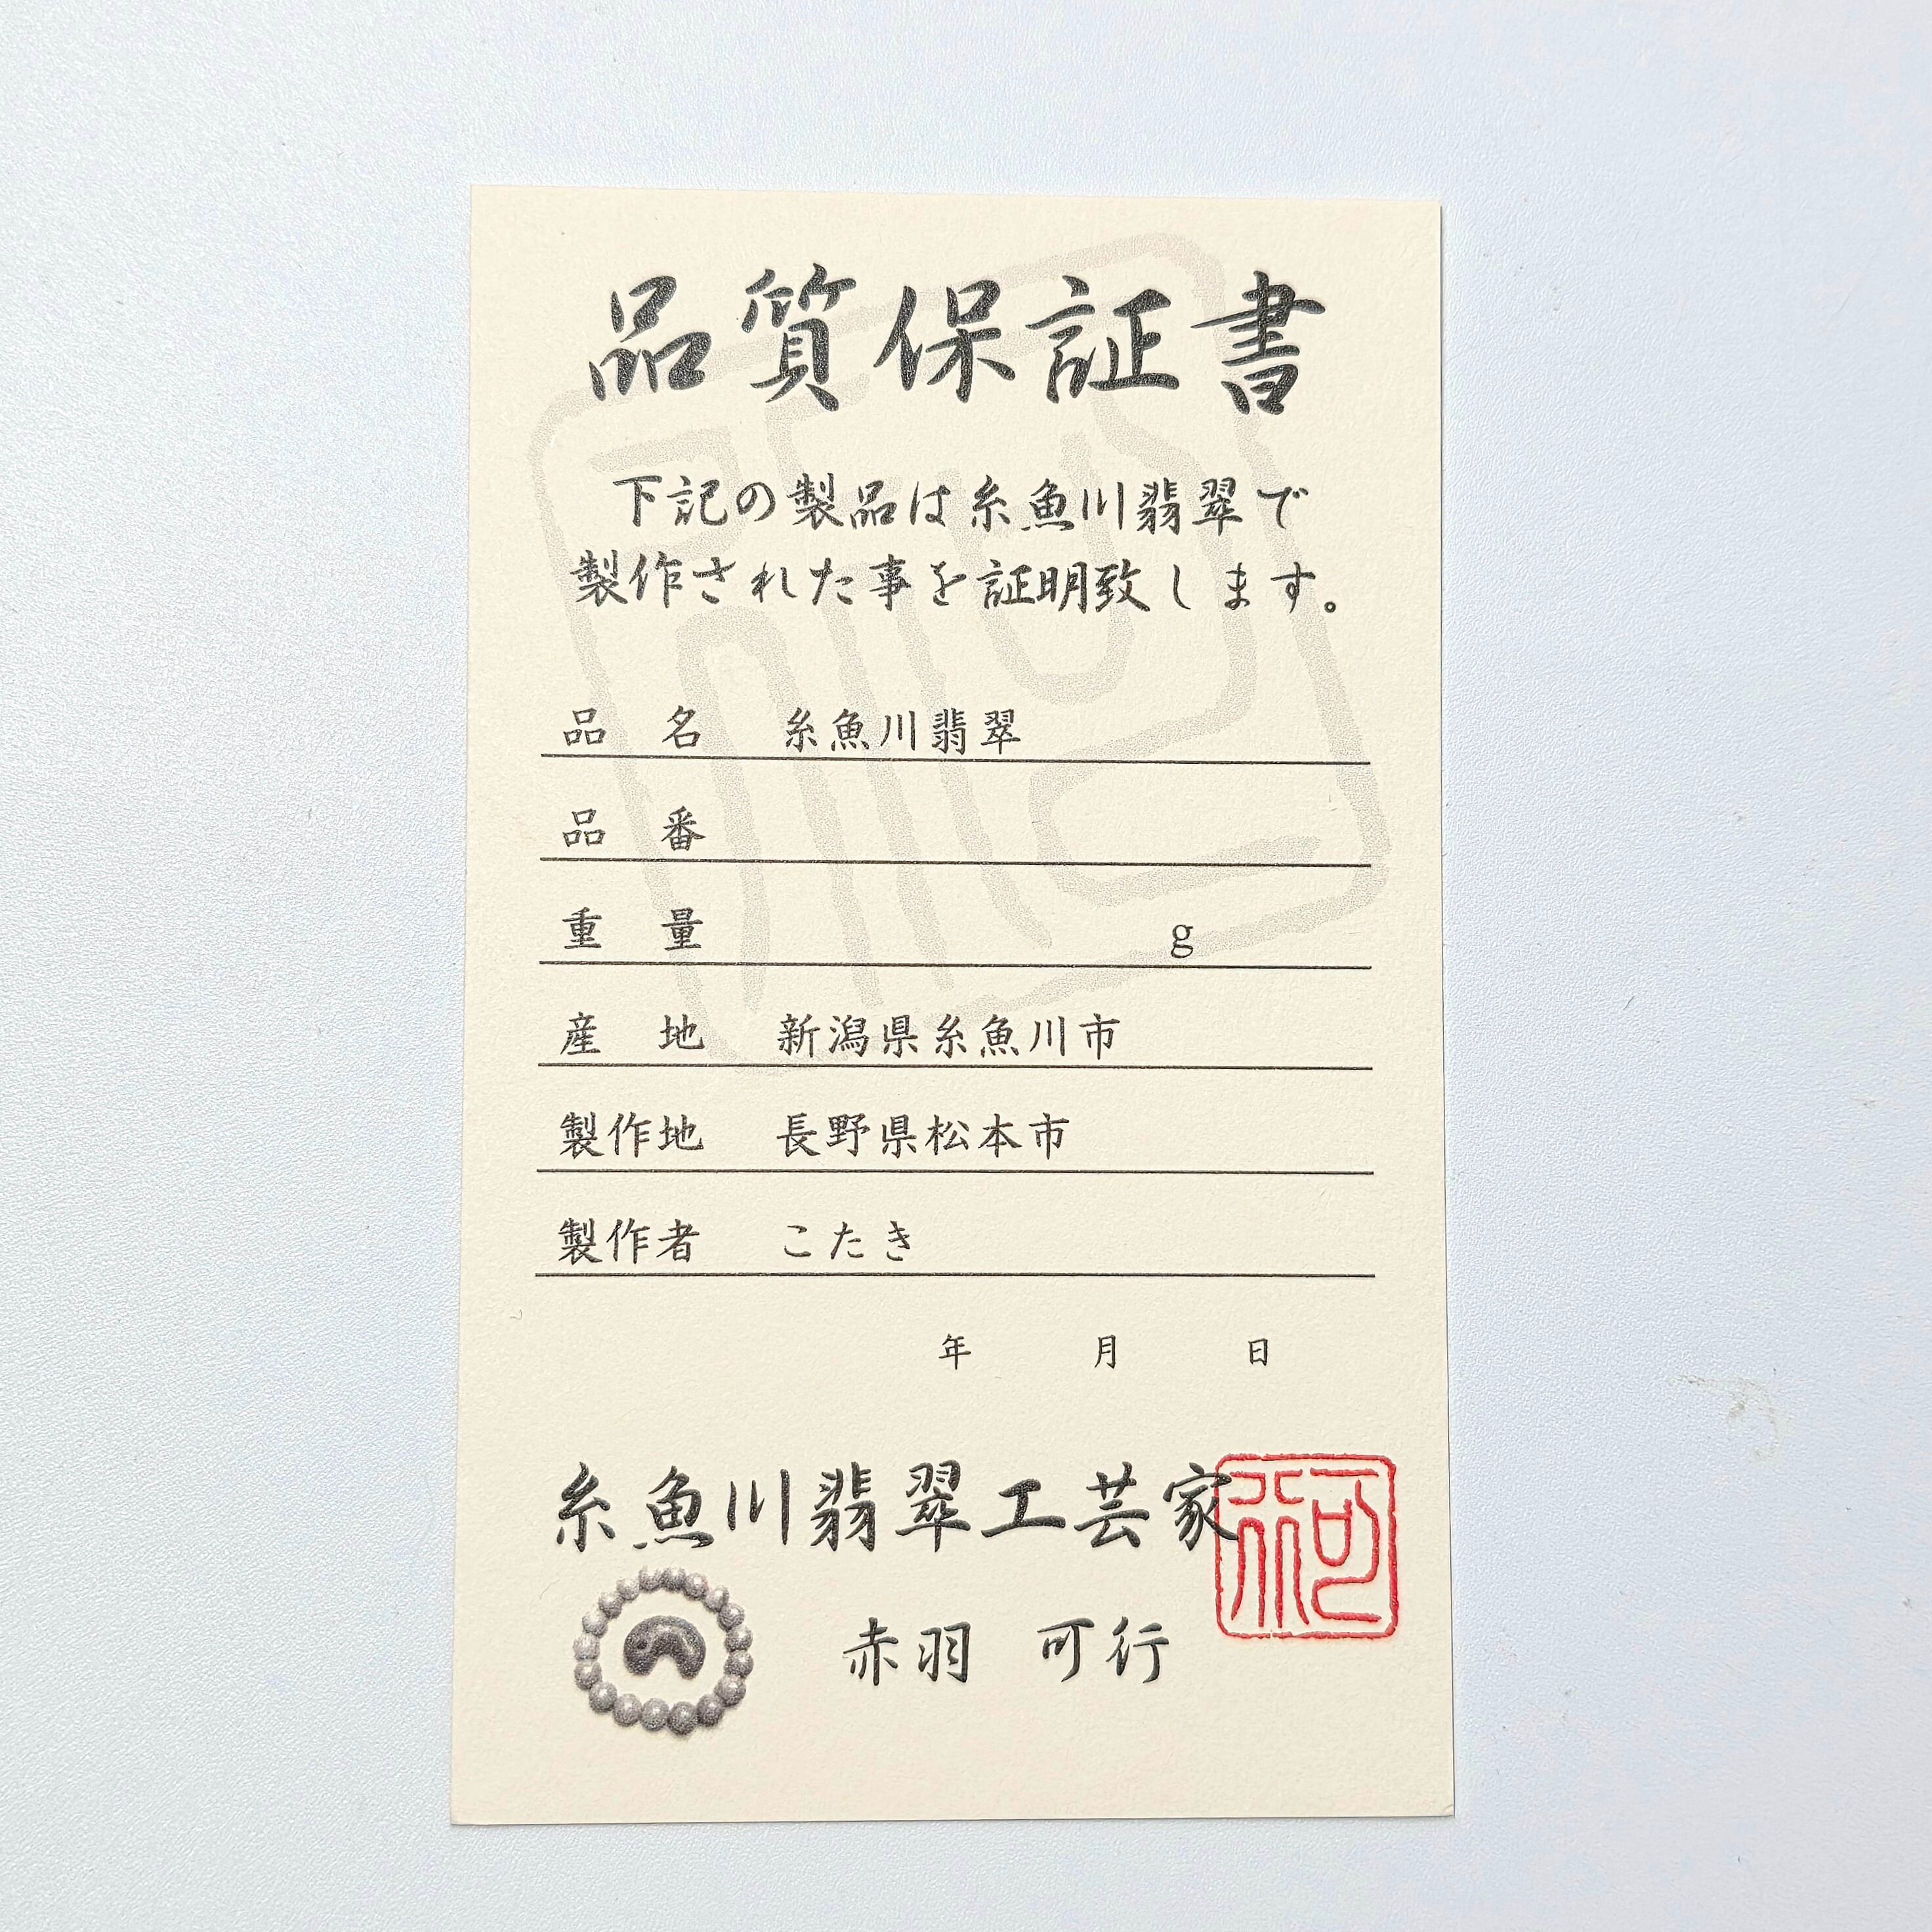 品質保証書
下記の製品は糸魚川翡翠で
製作された事を証明致します。
品 名 糸魚川翡翠
品 番
重 量 g
産 地 新潟県糸魚川市
製作地 長野県松本市
製作者 こたき
年 月 日
糸魚川翡翠工芸家
赤羽 可行